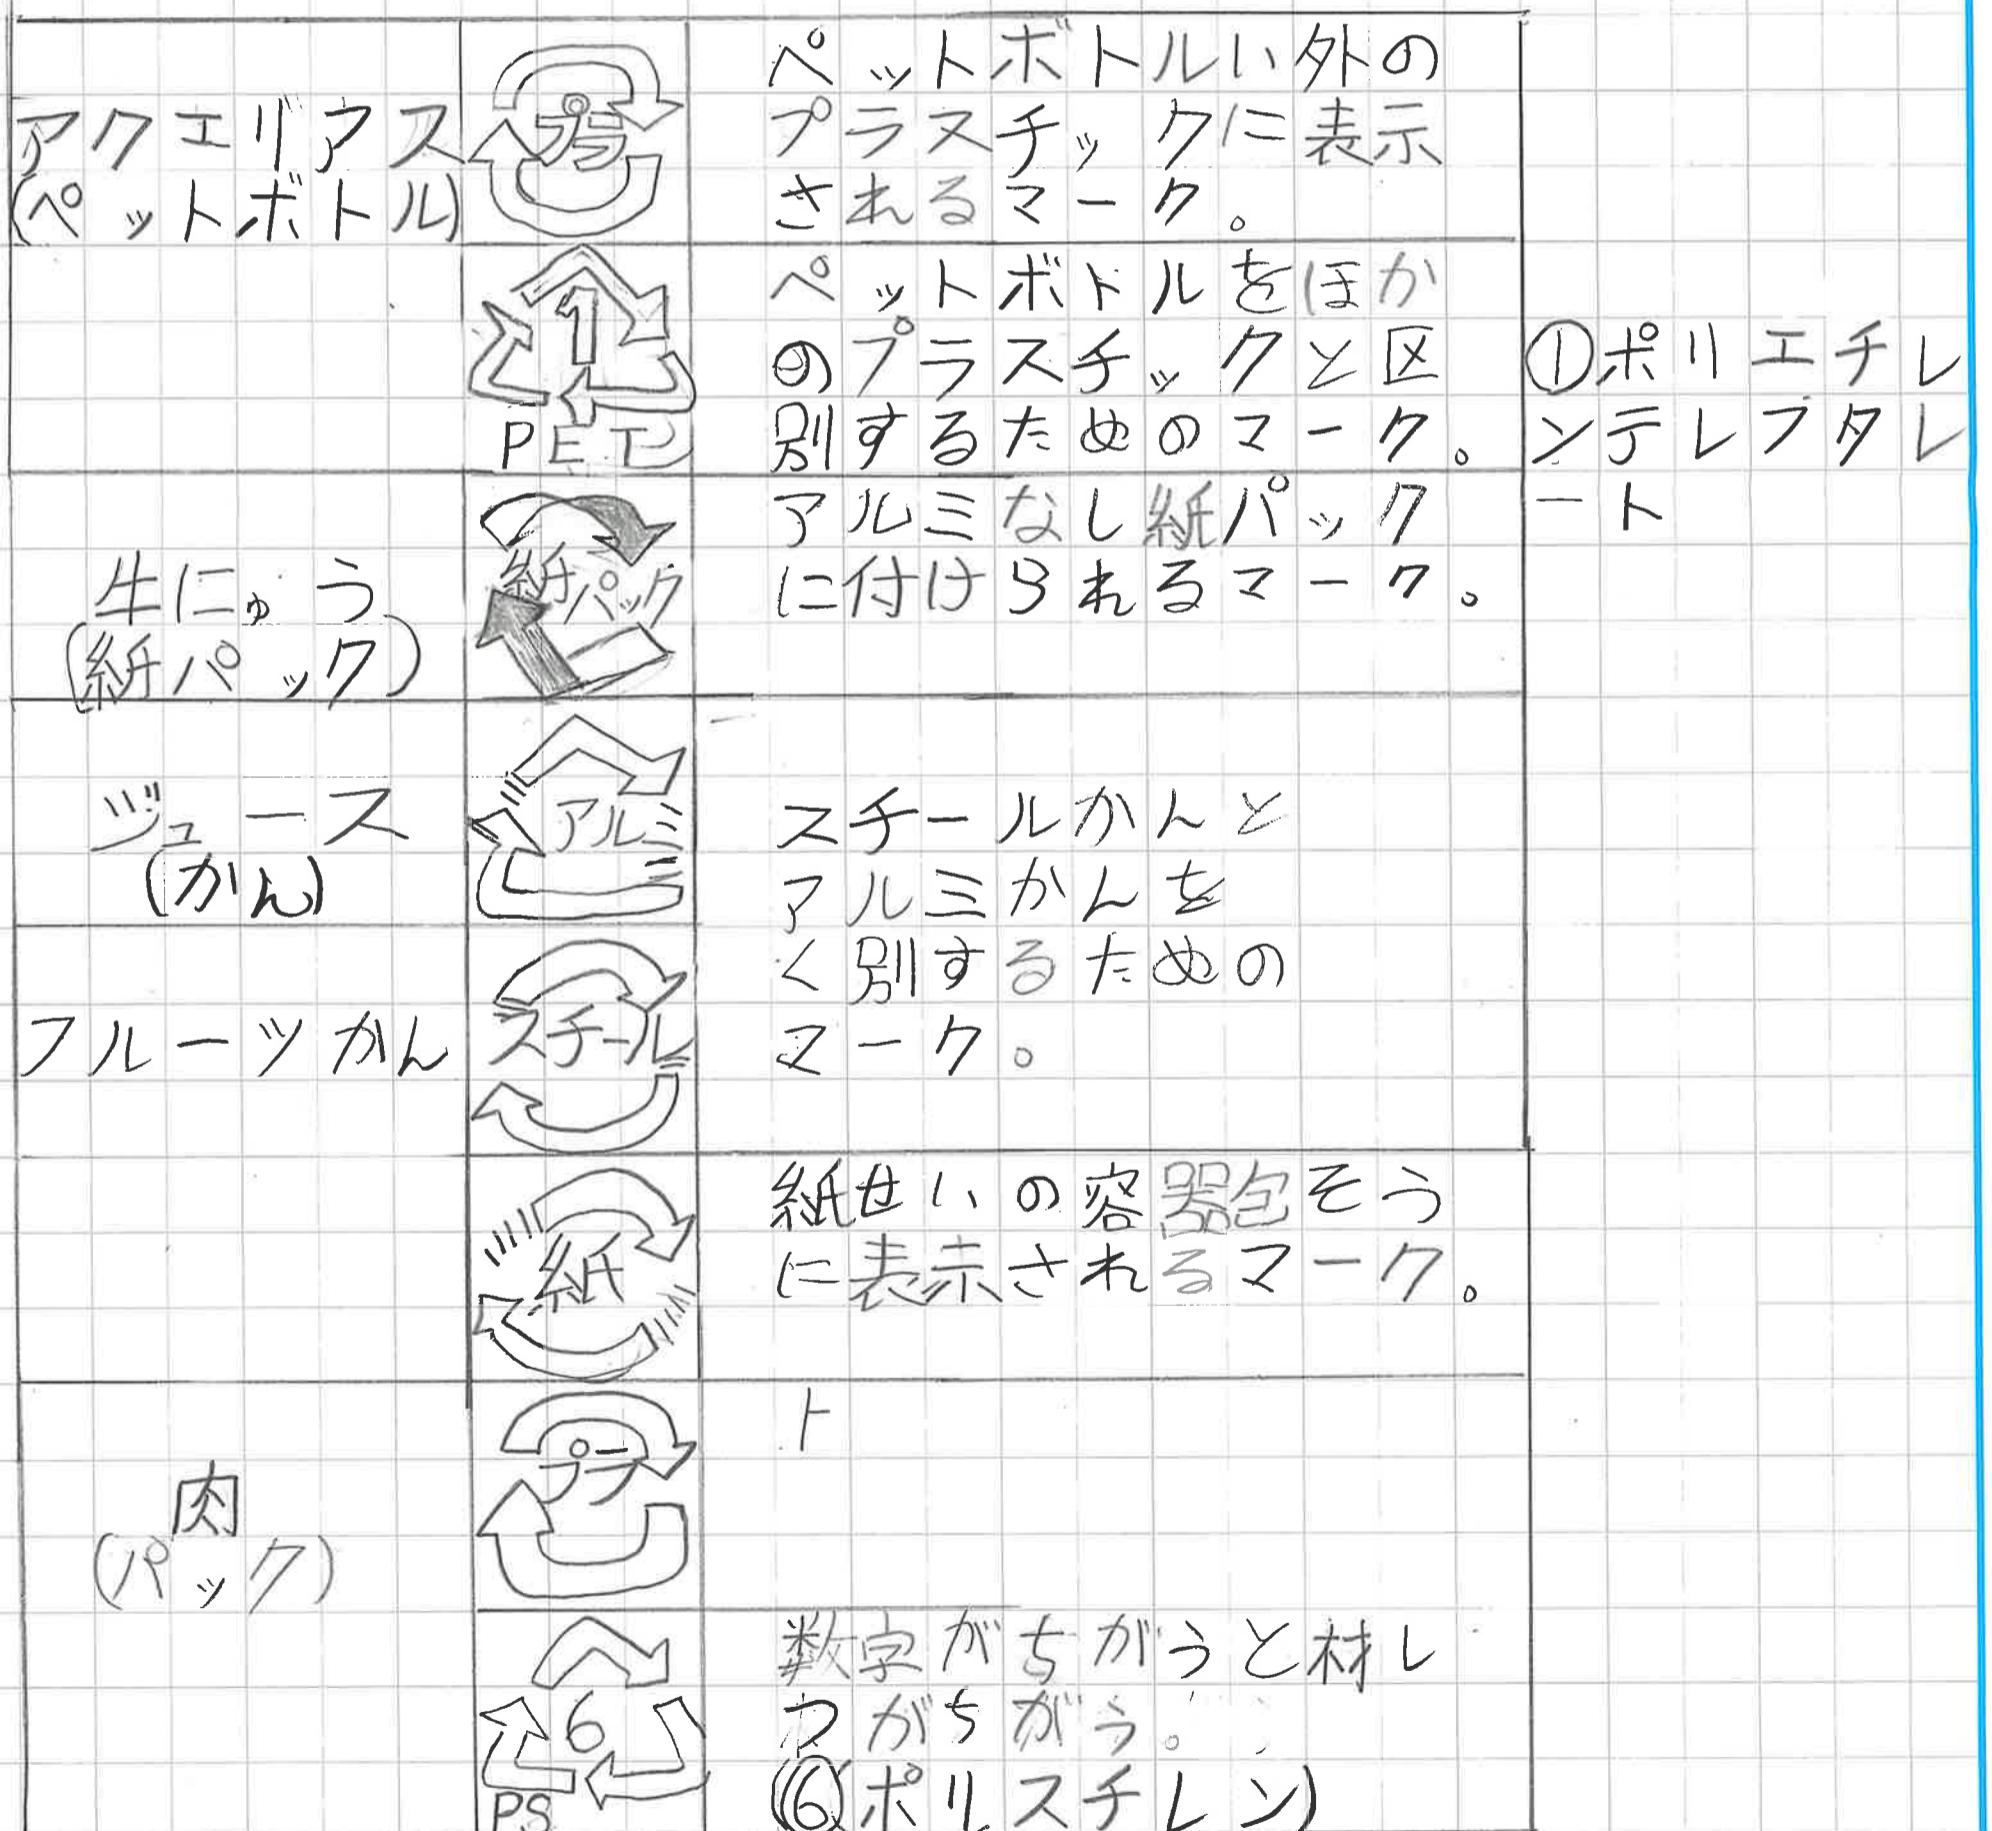 アクエリアス
(ペットボトル)
プラ
ペットボトルい外の
プラスチックに表示
されるマーク。
1
PET
ペットボトルをほか
のプラスチックと区
別するためのマーク。
①ポリエチレ
ンテレフタレ
ート
牛にゅう
(紙パック)
紙パック
アルミなし紙パック
に付けられるマーク。
ジュース
(かん)
アルミ
スチールかんと
アルミかんを
く別するための
マーク。
フルーツかん
スチール
紙
紙せいの容器包そう
に表示されるマーク。
肉
(パック)
プラ
ト
6
PS
数字がちがうと材し
つがちがう。
(⑥ポリスチレン)